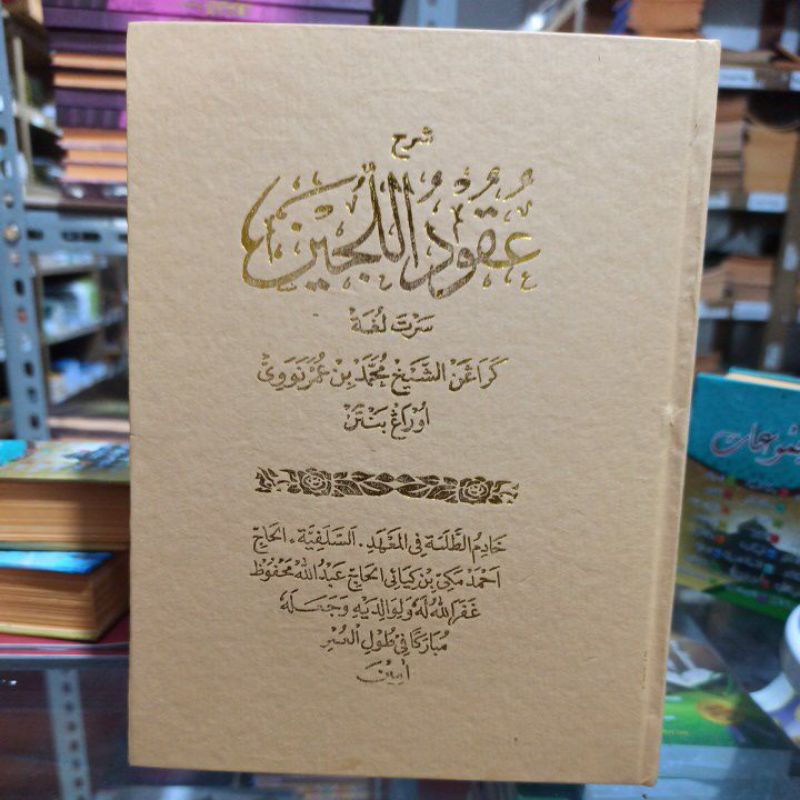 شرح
عُقُودُ اللُّجَيْن
سَرْتَ لُغَةْ
كَرَاڠَنْ الشَّيْخْ مُحَمَّدْ بِنْ عُمَرْ نَوَوِيْ
اُوْرَاڠْ بَنْتَنْ
خَادِمُ الطَّلَبَةِ فِى المَعْهَدِ . اَلسَّلَفِيَّة ، الحَاجّ
اَحْمَدْ مَكِيّ بِنْ كِيَائِى الحَاجّ عَبْدُ اللّٰه مَحْفُوظْ
غَفَرَ اللّٰهُ لَهُ وَلِوَالِدِيْهِ وَجَعَلَهُ
مُبَارَكًا فِىْ طُوْلِ الْعُمْرِ
اٰمِيْنَ